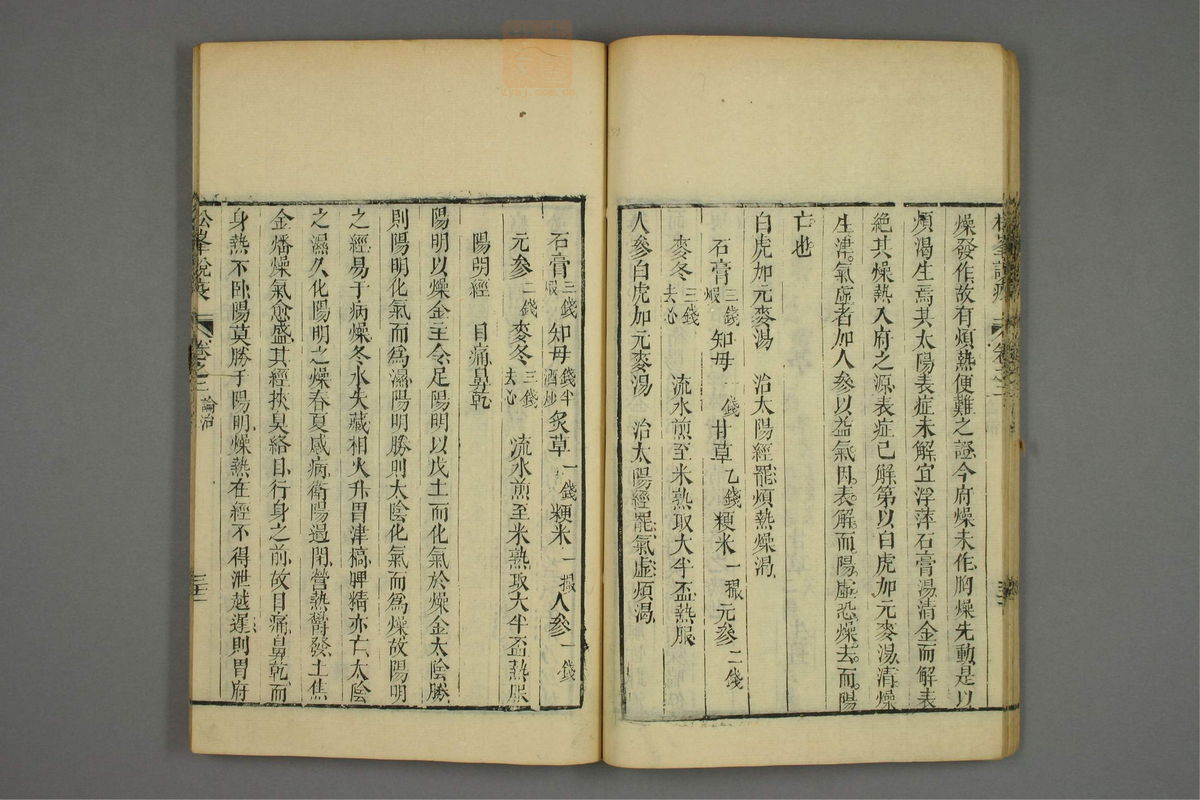 燥發作故有煩熱便難之證今府燥未作胸燥先動是以
煩渴生焉其太陽表症未解宜浮萍石膏湯清金而解表
絕其燥熱入府之源表症已解第以白虎加元麥湯清燥
生津氣虛者加人參以益氣因表解而陽虛恐燥去而陽
亡也
白虎加元麥湯 治太陽經罷煩熱燥渴
石膏三錢煅 知母一錢 甘草乙錢 粳米一撮 元參二錢
麥冬三錢去心 流水煎至米熟取大半盃熱服
人參白虎加元麥湯 治太陽經罷氣虛煩渴
石膏三錢煅 知母錢半酒炒 炙草一錢 粳米一撮 人參一錢
元參二錢 麥冬三錢去心 流水煎至米熟取大半盃熱服
陽明經 目痛鼻乾
陽明以燥金主令足陽明以戊土而化氣於燥金太陰勝
則陽明化氣而為濕陽明勝則太陰化氣而為燥故陽明
之經易于病燥冬水失藏相火升胃津槁脾精亦亡太陰
之濕久化陽明之燥春夏感病衛陽過閉營熱欝發土焦
金燔燥氣愈盛其經挾鼻絡目行身之前故目痛鼻乾而
身熱不卧陽莫勝于陽明燥熱在經不得泄越遲則胃府
松峯說疫 卷之三 論治 三十二